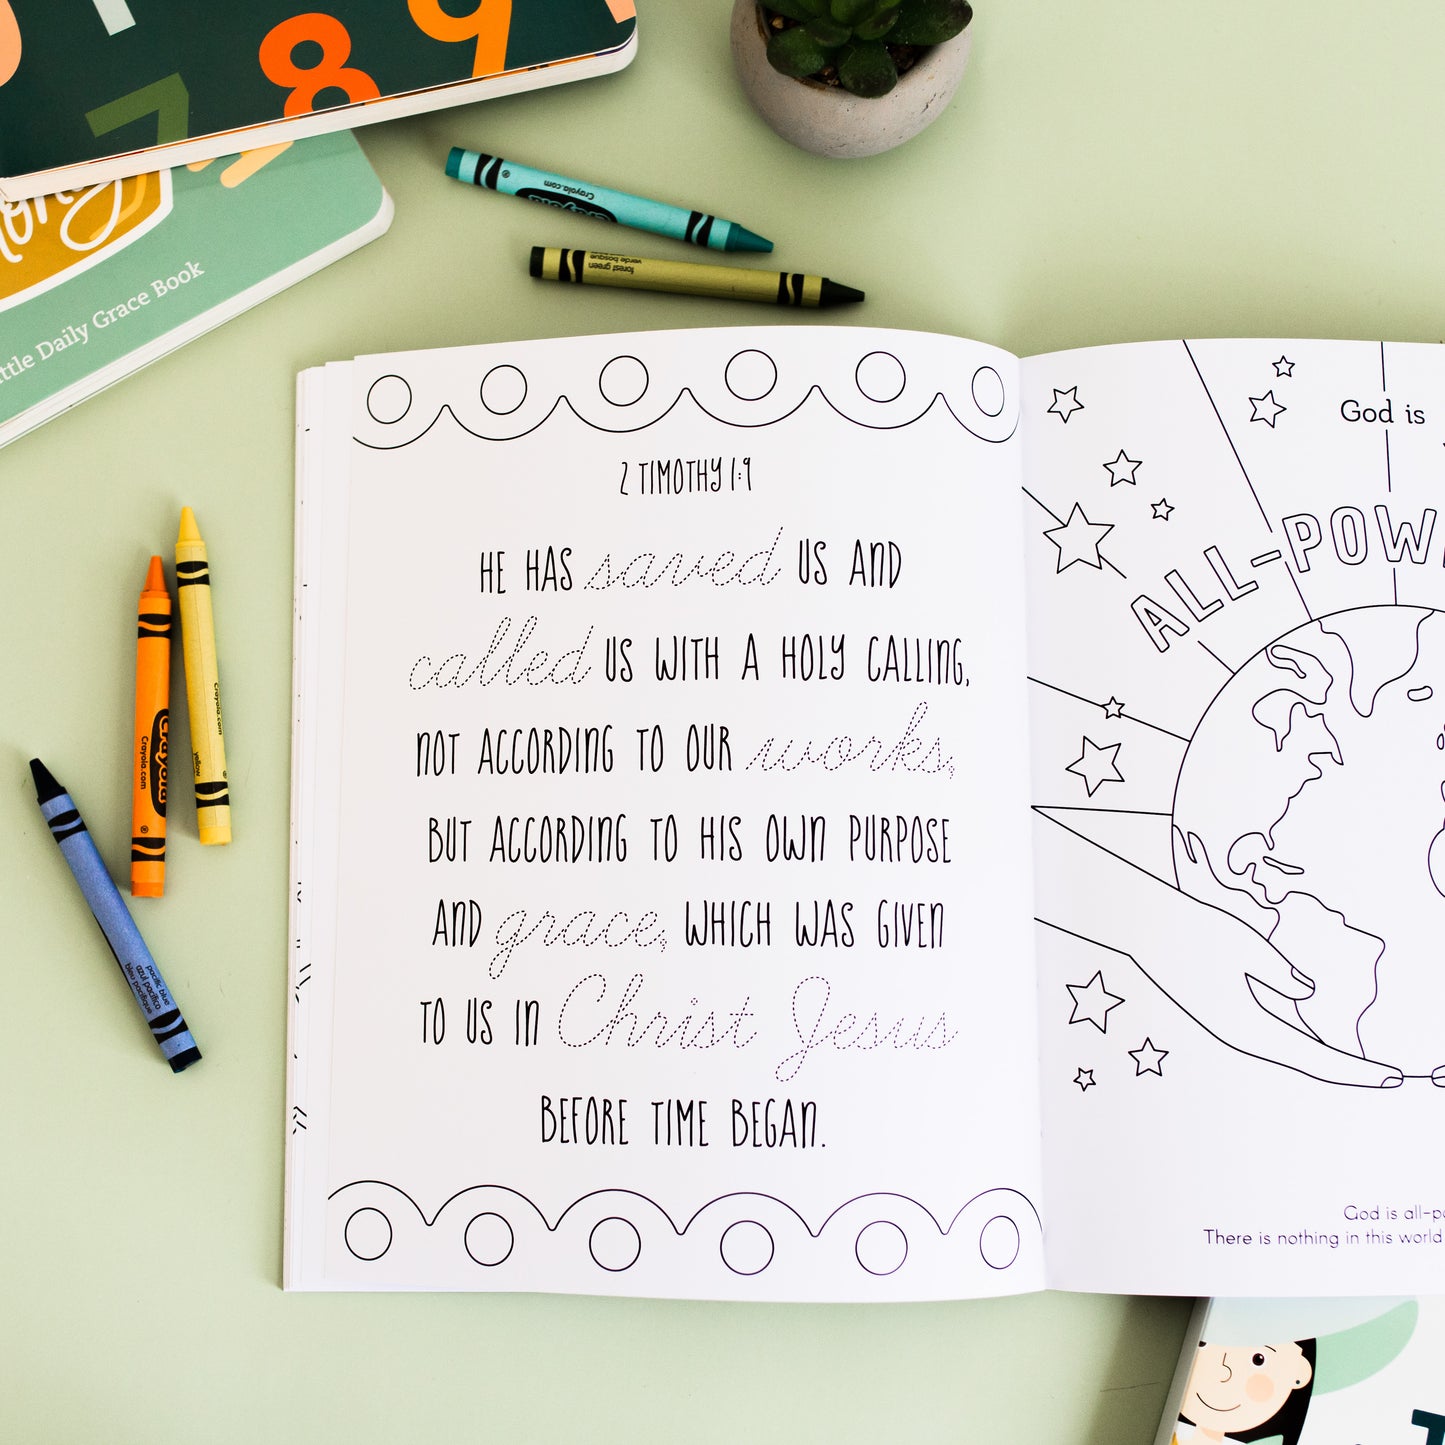 7 8 9
ttle Daily Grace Book
Crayola
Crayola.com
forest green
verde bosque
2 TIMOTHY 1:9
HE HAS saved US AND
called US WITH A HOLY CALLING,
NOT ACCORDING TO OUR works,
BUT ACCORDING TO HIS OWN PURPOSE
AND grace, WHICH WAS GIVEN
TO US IN Christ Jesus
BEFORE TIME BEGAN.
God is
ALL-POW
God is all-po
There is nothing in this world
Crayola
Crayola.com
Crayola.com
yellow
pacific blue
azul pacífico
bleu pacifique